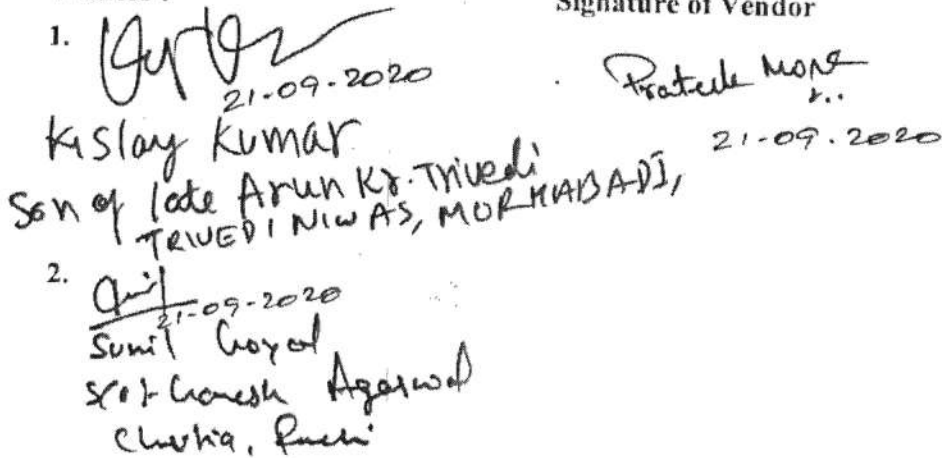 Signature of Vendor
1.
21-09-2020
Prateek More
21-09.2020
Kislay Kumar
Son of late Arun Kr. Trivedi
TRIVEDI NIWAS, MORHABADI,
2.
21-09-2020
Sunil Goyal
S/o Ganesh Agarwal
Chutia, Ranchi